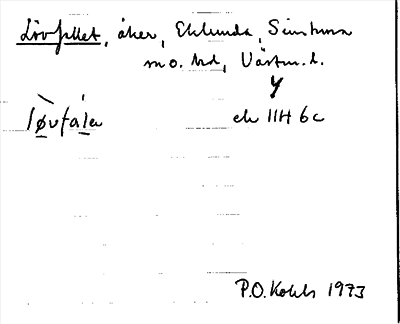 Lövfallet, åker, Eklunda, Simtuna
sn o. hd, Västm. l.
løvfalen
ek 11H 6c
P.O. Kohls 1973